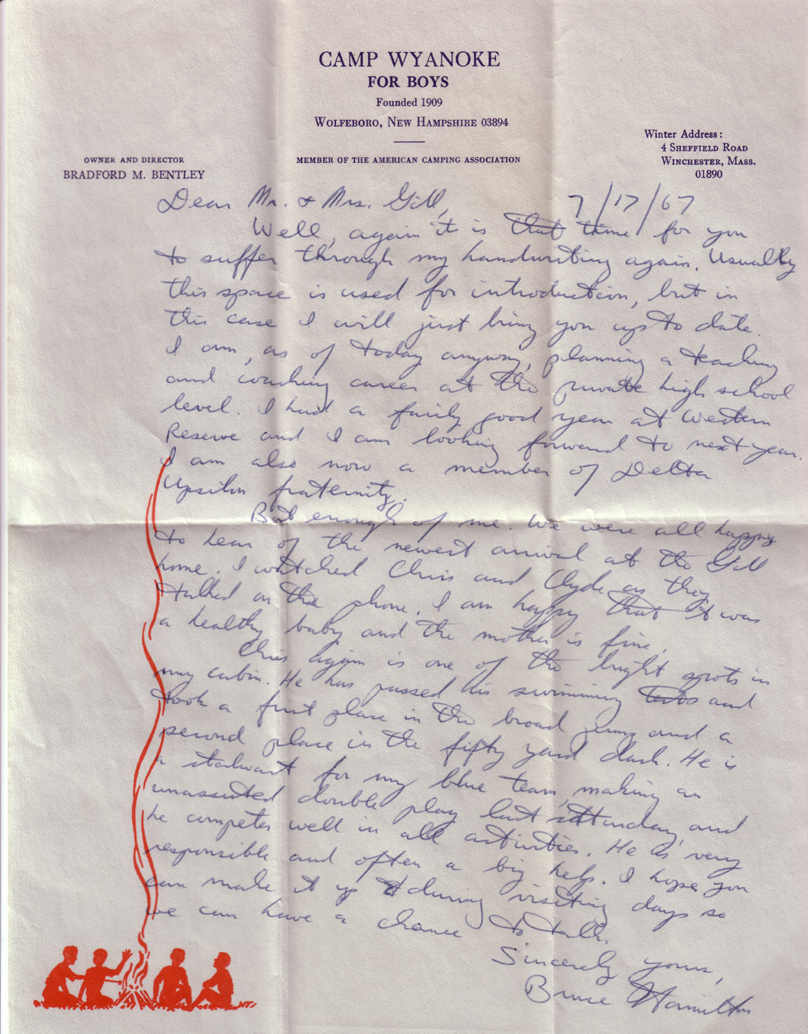 CAMP WYANOKE
FOR BOYS
Founded 1909
WOLFEBORO, NEW HAMPSHIRE 03894
MEMBER OF THE AMERICAN CAMPING ASSOCIATION
OWNER AND DIRECTOR
BRADFORD M. BENTLEY
Winter Address:
4 SHEFFIELD ROAD
WINCHESTER, MASS.
01890
7/17/67
Dear Mr. & Mrs. Gill,
Well, again it is that time for you
to suffer through my handwriting again. Usually
this space is used for introduction, but in
this case I will just bring you up to date.
I am, as of today anyway, planning a teaching
and coaching career at the private high school
level. I had a fairly good year at Western
Reserve and I am looking forward to next year.
I am also now a member of Delta
Upsilon fraternity.
But enough of me. We were all happy
to hear of the newest arrival at the Gill
home. I watched Chris and Clyde as they
talked on the phone. I am happy that it was
a healthy baby and the mother is fine.
Chris again is one of the bright spots in
my cabin. He has passed his swimming tests and
took a first place in the broad jump and a
second place in the fifty yard dash. He is
a stalwart for my blue team, making an
unassisted double play last Saturday, and
he competes well in all activities. He is very
responsible and often a big help. I hope you
can make it up during visiting days so
we can have a chance to talk.
Sincerely yours,
Bruce Hamilton